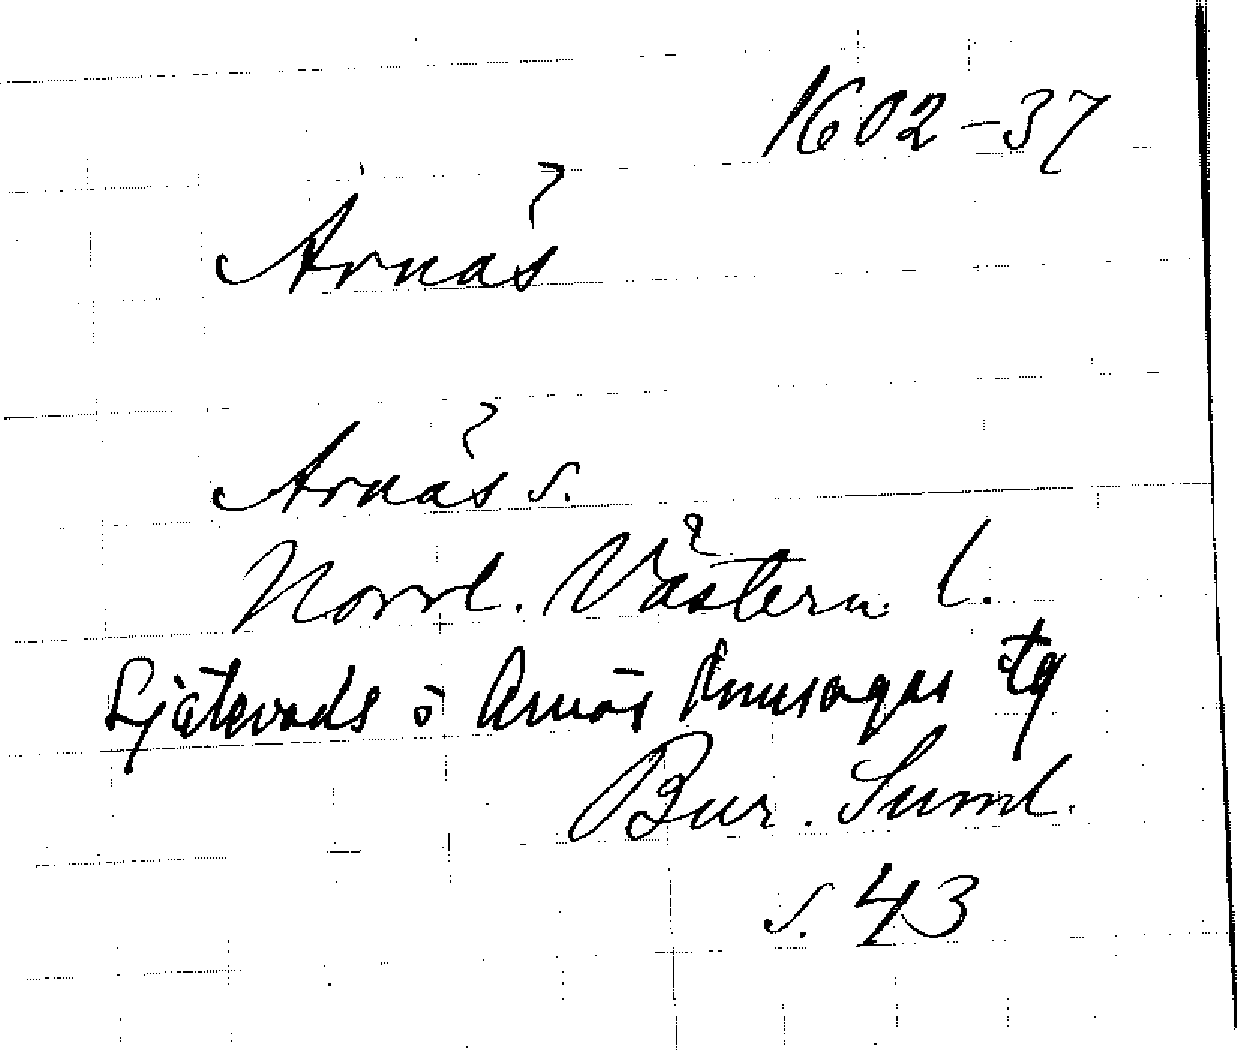 1602-37
Arnäs
Arnäs s.
Norrl. Västern l.
Själevads o Arnäs tingslags tg
Bur. Suml.
s. 43